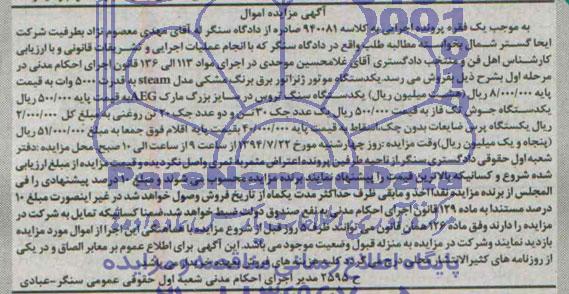 آگهی مزایده اموال
به موجب یک فقره پرونده اجرایی به کلاسه ۹۴۰۰۸۱ صادره از دادگاه سنگر له آقای مهدی معصوم نژاد بطرفیت شرکت
ایحا گستر شمال بخواسته مطالبه طلب واقع در دادگاه سنگر که با انجام عملیات اجرایی و تشریفات قانونی و با ارزیابی
کارشناس اهل فن و منتخب دادگستری آقای غلامحسین موحدی در اجرای مواد ۱۱۳ الی ۱۳۶ قانون اجرای احکام مدنی در
مرحله اول بشرح ذیل بفروش می رسد. یکدستگاه موتور ژنراتور برق پرنگ مشکی مدل steam به قدرت ۵۰۰۰ وات به قیمت
پایه ۸/۰۰۰/۰۰۰ ریال (هشت میلیون ریال) یکدستگاه سنگ برش در سایز بزرگ مارک AEG به قیمت پایه ۵۰۰/۰۰۰ ریال
یکدستگاه جوش تک فاز به قیمت ۵۰۰/۰۰۰ ریال یک عدد جک ۳۰ تن و دو عدد جک ۲۰ تن روغنی به مبلغ کل ۲/۰۰۰/۰۰۰
ریال یکدستگاه پرس ضایعات بدون چک اسقاط به قیمت پایه ۴۰/۰۰۰/۰۰۰ به قیمت پایه اقلام فوق جمعا به مبلغ ۵۱/۰۰۰/۰۰۰ ریال
(پنجاه و یک میلیون ریال) وقت مزایده :روز چهارشنبه مورخ ۱۳۹۴/۷/۲۲ از ساعت ۹ از ساعت الی ۱۰ صبح. محل مزایده :دفتر
شعبه اول حقوقی دادگستری سنگر از ناحیه طرفین پرونده اعتراض مثمر به ثمری واصل نگردیده و قیمت مزایده از مبلغ ارزیابی
شده شروع و کسانیکه بالاترین قیمت را پیشنهاد نمایند برنده مزایده محسوب می شوند و مبلغ ۱۰ درصد پیشنهادی را فی
المجلس از برنده مزایده نقدا اخذ و مابقی ظرف حداکثر مدت یکماه از تاریخ فروش وصول خواهد شد در غیر اینصورت مبلغ ۱۰
درصد مستندا به ماده ۱۲۹ قانون اجرای احکام مدنی به نفع صندوق دولت ضبط خواهد شد. ضمنا کسانیکه تمایل به شرکت در
مزایده را دارند وفق ماده ۱۲۶ همان قانون می توانند ظرف ۵ روز قبل از شروع مزایده با هماهنگی این اجرا از اموال مورد مزایده
بازدید نمایند وشرکت در مزایده به منزله قبول وضعیت موجود می باشد. این آگهی برای اطلاع عموم بر معابر الصاق و در یکی
از روزنامه های کثیرالانتشار محلی درج می گردد
ح-۲۵۹۵ مدیر اجرای احکام مدنی شعبه اول حقوقی عمومی سنگر-عبادی